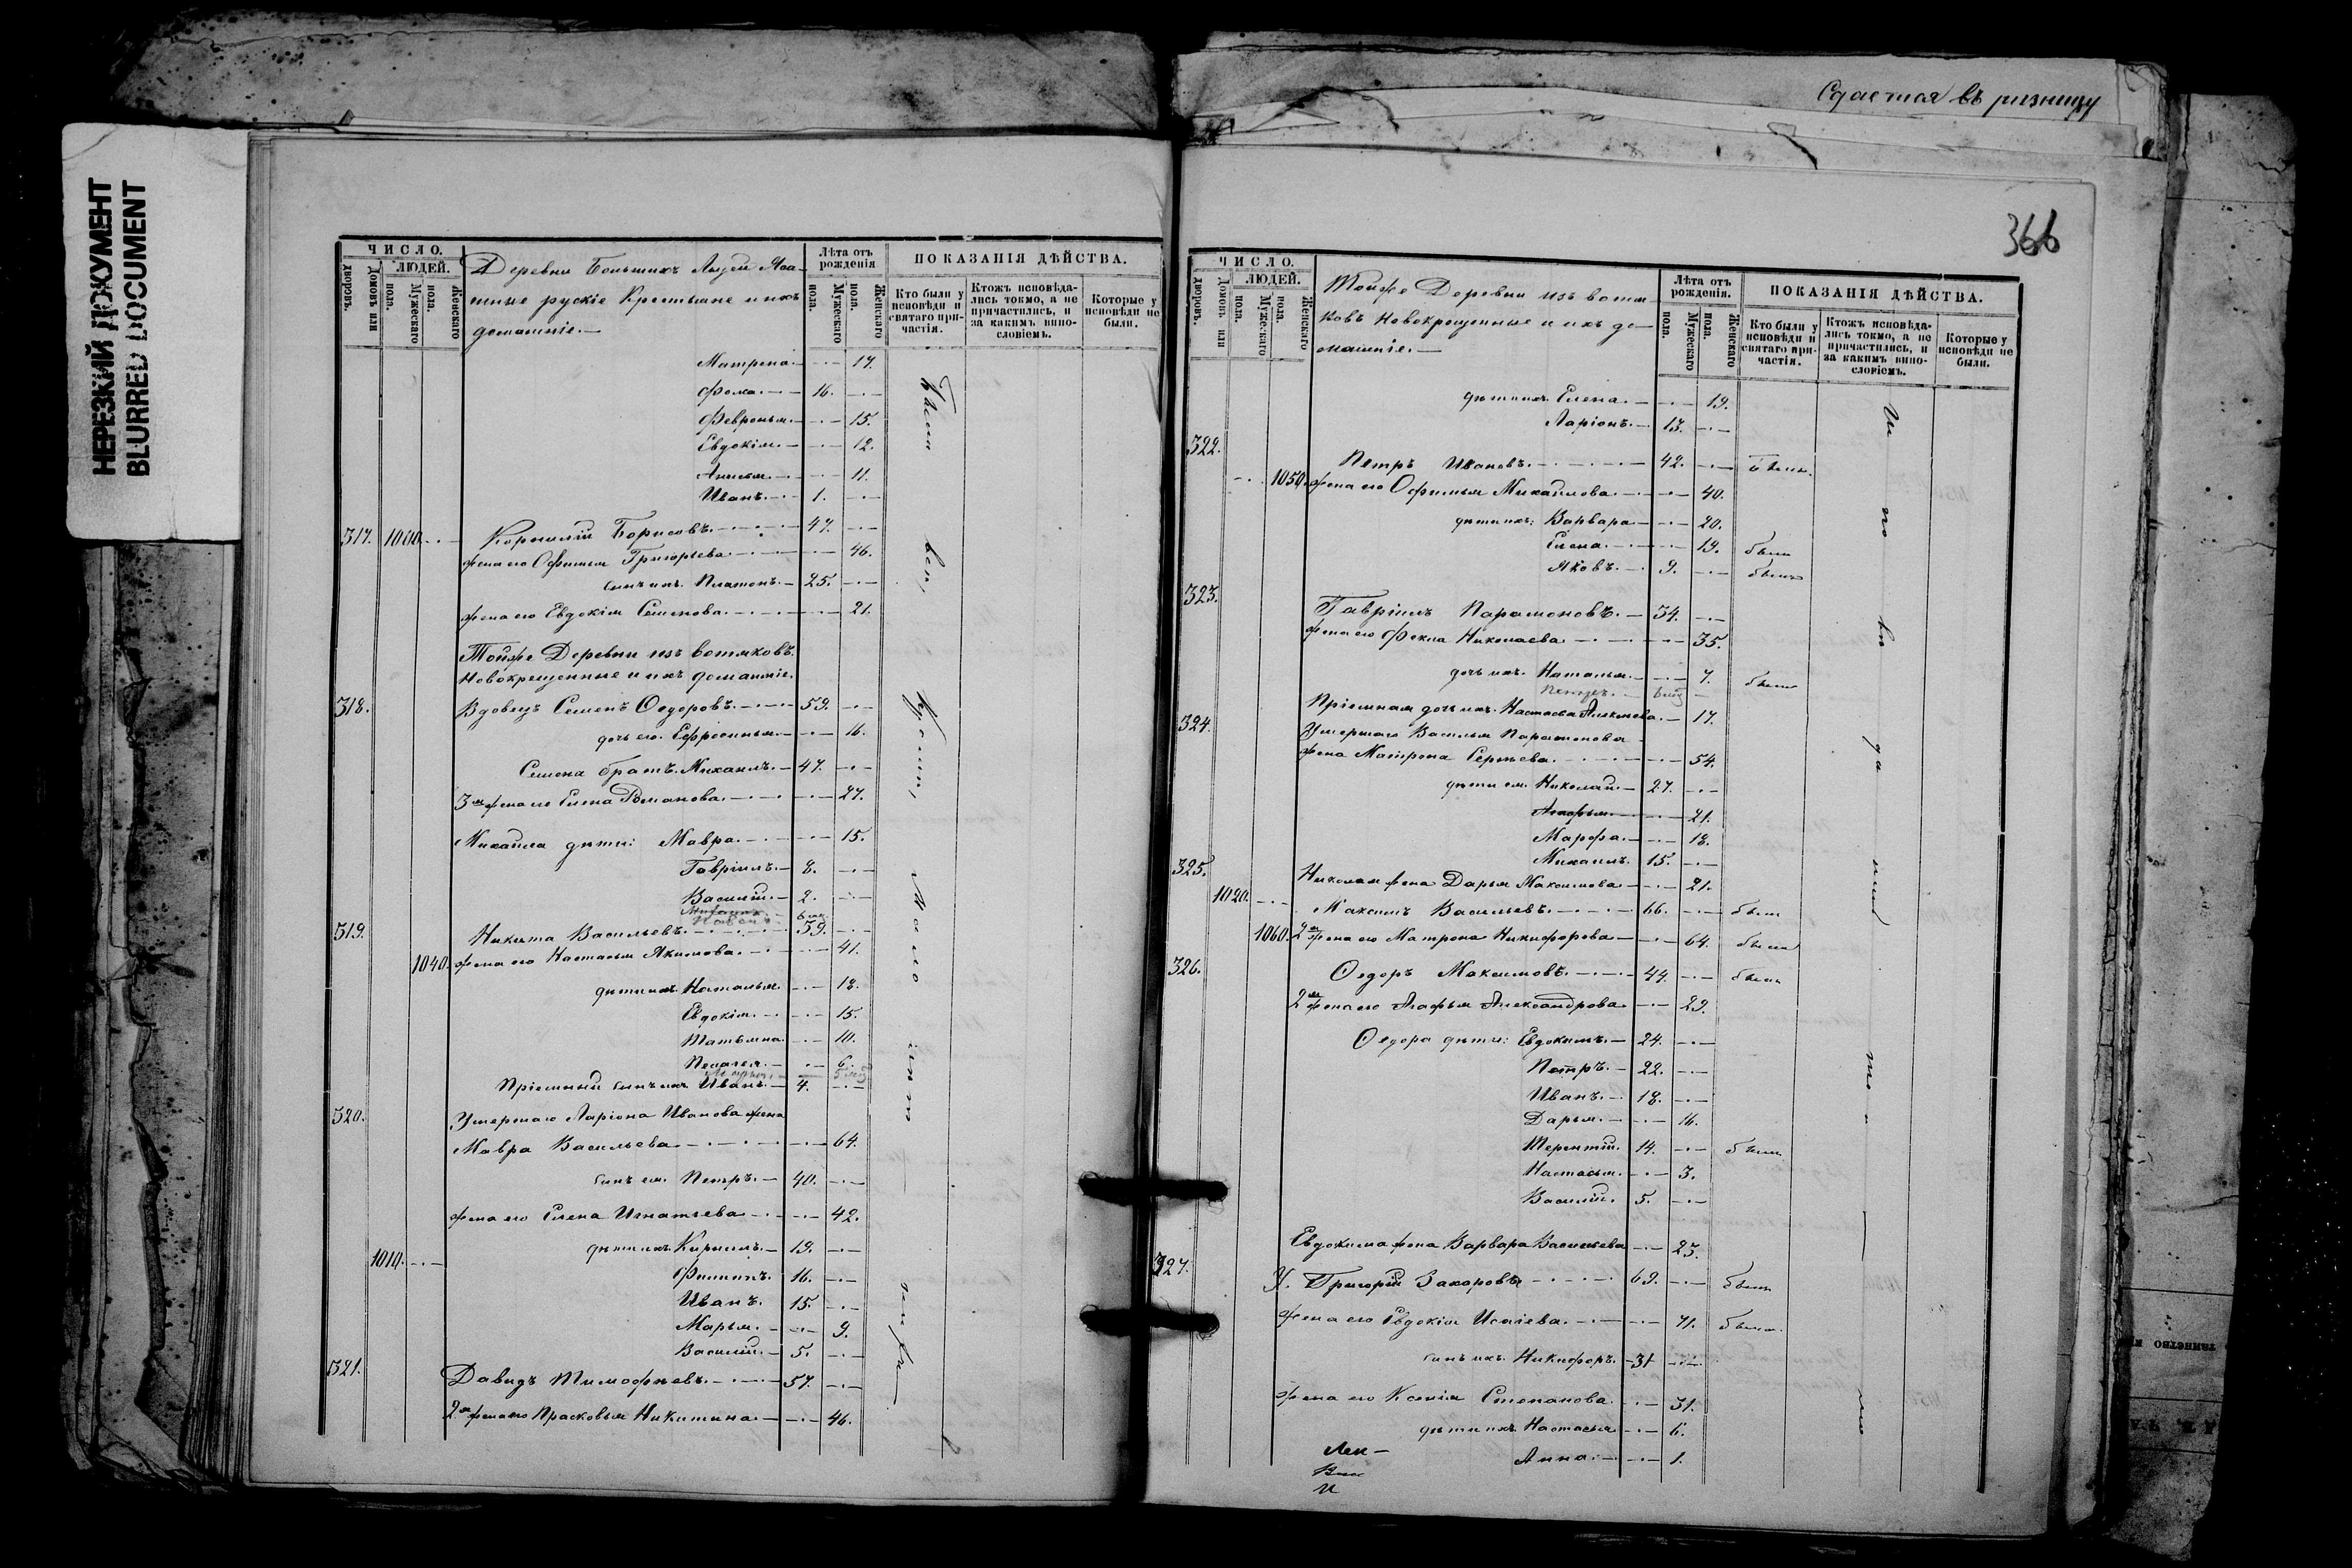 НЕРЕЗКИЙ ДОКУМЕНТ
BLURRED DOCUMENT
ЧИСЛО.
ЛЮДЕЙ.
Домовъ или дворовъ.
Мужескаго пола.
Женскаго пола.
Деревни Большихъ Лызей Яса-
шные рускіе Крестьяне и ихъ
домашніе.—
Лѣта отъ рожденія
Мужескаго пола.
Женскаго пола.
ПОКАЗАНІЯ ДѢЙСТВА.
Кто были у исповѣди и святаго при-частія.
Ктожъ исповѣда-лись токмо, а не причастились, и за какимъ вино-словіемъ.
Которые у исповѣди не были.
Матрена. — 17.
Фома. — 16.
Февронья. — 15.
Евдокія. — 12.
Анисья. — 11.
Иванъ. — 1.
317. Корнилій Борисовъ. — 47.
жена его Офимья Григорьева — 46.
сынъ ихъ Платонъ. — 25.
жена его Евдокія Семенова. — 21.
Тойже Деревни изъ вотяковъ
Новокрещенные и ихъ домашніе.
318. Вдовецъ Семенъ Ѳедоровъ. — 59.
дочь его Ефросинья. — 16.
Семена братъ Михаилъ. — 47.
3я жена его Елена Романова. — 27.
Михайла дѣти: Мавра. — 15.
Гавріилъ. — 8.
Василій. — 2.
319. Никита Васильевъ. — 59.
1040. жена его Настасья Якимова. — 41.
дѣти ихъ Наталья. — 18.
Евдокія. — 15.
Татьяна. — 10.
Пелагея. — 6.
Пріемный сынъ ихъ Иванъ. — 4.
320. Умершаго Ларіона Иванова жена
Мавра Васильева — 64.
сынъ ея Петръ. — 40.
жена его Елена Игнатьева — 42.
1010. дѣти ихъ Кирилъ. — 19.
Филипъ. 16.
Иванъ. 15.
Марья. — 9.
Василій. — 5.
321. Давидъ Тимофѣевъ. — 57.
2я жена его Прасковья Никитина. — 46.
Сдается въ ризницу
366
ЧИСЛО.
ЛЮДЕЙ.
Домовъ или дворовъ.
Мужескаго пола.
Женскаго пола.
Тойже Деревни изъ вотя-
ковъ Новокрещенные и ихъ до-
машніе.—
Лѣта отъ рожденія.
Мужескаго пола.
Женскаго пола.
ПОКАЗАНІЯ ДѢЙСТВА.
Кто были у исповѣди и святаго при-частія.
Ктожъ исповѣда-лись токмо, а не причастились, и за какимъ вино-словіемъ.
Которые у исповѣди не были.
дѣти ихъ Елена. — 19.
Ларіонъ. — 13.
322. Петръ Ивановъ. — 42. были
1050. жена его Офимья Михайлова. — 40.
дѣти ихъ: Варвара — 20.
Елена. — 19. были
Яковъ. — 9. былъ
323. Гавріилъ Парамоновъ. — 34.
жена его Фекла Николаева — 35.
дочь ихъ Наталья. — 7. были
Пріемная дочь ихъ Настасья Алексѣева. — 17.
324. Умершаго Василья Парамонова
жена Матрена Сергѣева. — 54.
дѣти ея Николай. — 27.
Агафья. — 21.
Марфа. — 18.
Михаилъ. 15.
325. Николая жена Дарья Максимова — 21.
1020. Максимъ Васильевъ. — 66. были
1060. 2я жена его Матрена Никифорова — 64. были
326. Ѳедоръ Максимовъ. — 44. были
2я жена его Агафья Александрова — 29.
Ѳедора дѣти: Евдокимъ. — 24.
Петръ. — 22.
Иванъ. — 18.
Дарья. — 16.
Терентій. 14. были
Настасья. — 3.
Василій. 5.
Евдокима жена Варвара Васильева — 23.
327. У. Григорій Захаровъ — 69. были
жена его Евдокія Исаіева. — 71. были
сынъ ихъ Никифоръ. 31
жена его Ксенія Степанова — 31.
дѣти ихъ Настасья — 6.
Анна. — 1.